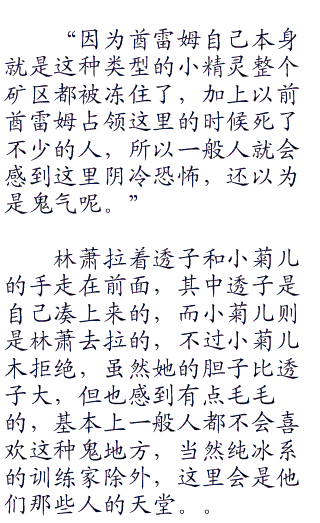 “因为酋雷姆自己本身
就是这种类型的小精灵整个
矿区都被冻住了，加上以前
酋雷姆占领这里的时候死了
不少的人，所以一般人就会
感到这里阴冷恐怖，还以为
是鬼气呢。”
林萧拉着透子和小菊儿
的手走在前面，其中透子是
自己凑上来的，而小菊儿则
是林萧去拉的，不过小菊儿
木拒绝，虽然她的胆子比透
子大，但也感到有点毛毛
的，基本上一般人都不会喜
欢这种鬼地方，当然纯冰系
的训练家除外，这里会是他
们那些人的天堂。。